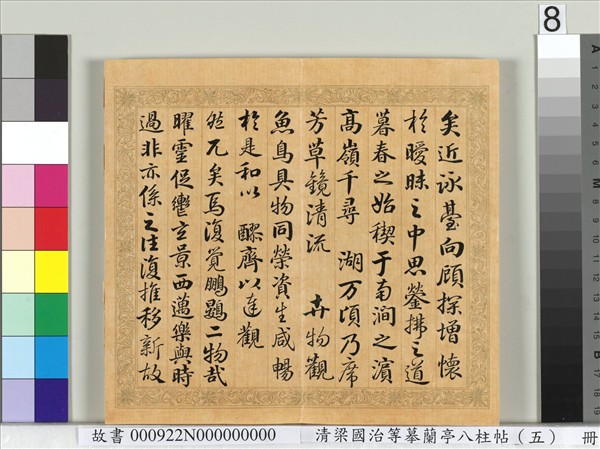 矣近詠臺向顧探增懷
於曖昧之中思鎣拂之道
暮春之始禊于南澗之濱
高嶺千尋 湖万頃乃席
芳草鏡清流 卉物觀
魚鳥具物同榮資生咸暢
於是和以 醪齊以達觀
然兀矣焉復覺鵬鷃二物哉
曜靈促轡玄景西邁樂與時
過非亦係之往復推移新故
8
故書 000922N000000000 清梁國治等摹蘭亭八柱帖（五） 冊